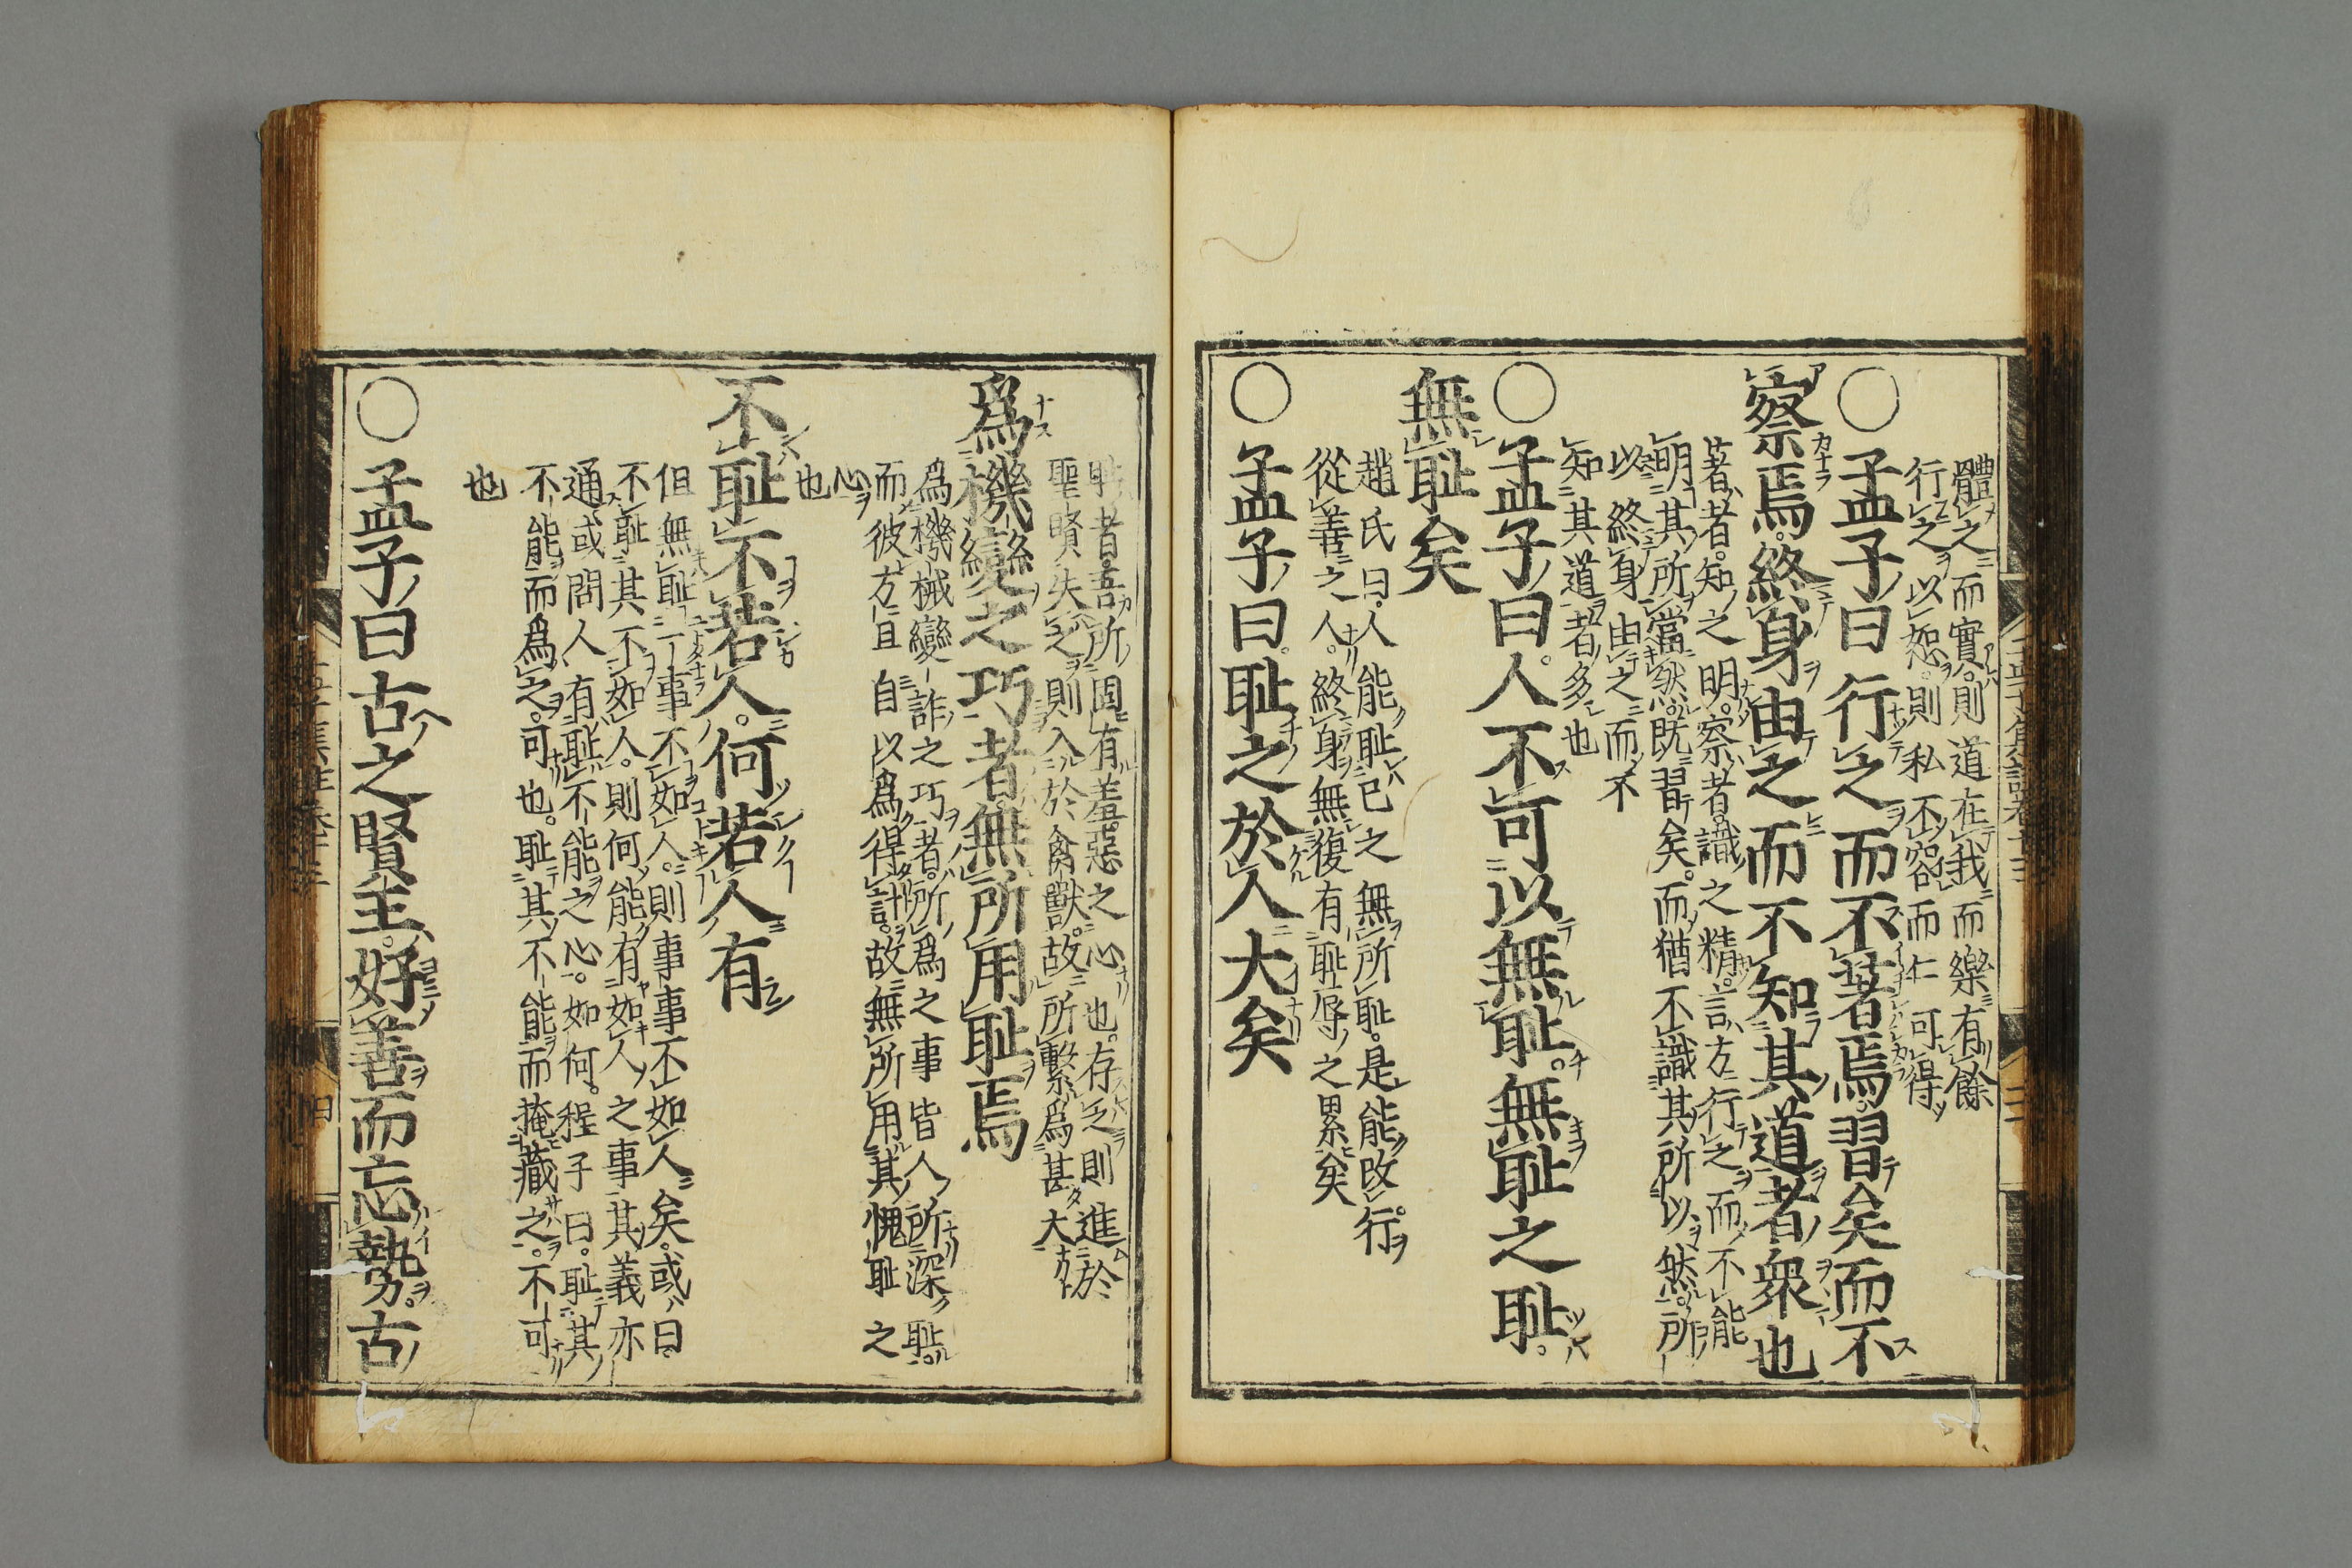 體之而實則道在我而樂有餘
行之以恕則私不容而仁可得
○孟子曰行之而不著焉習矣而不
察焉終身由之而不知其道者衆也
著者知之明察者識之精言方行之而不能
明其所當然既習矣而猶不識其所以然所
以終身由之而不
知其道者多也
○孟子曰人不可以無耻無耻之耻
無耻矣
趙氏曰人能耻己之無所耻是能改行
從善之人終身無復有耻辱之累矣
○孟子曰耻之於人大矣
耻者吾所固有羞惡之心也存之則進於
聖賢失之則入於禽獸故所繫爲甚大
爲機變之巧者無所用耻焉
爲機械變詐之巧者所爲之事皆人所深耻
而彼方且自以爲得計故無所用其愧耻之
心
也
不耻不若人何若人有
但無耻一事不如人則事事不如人矣或曰
不耻其不如人則何能有如人之事其義亦
通或問人有耻不能之心如何程子曰耻其
不能而爲之可也耻其不能而掩藏之不可
也
○孟子曰古之賢王好善而忘勢古